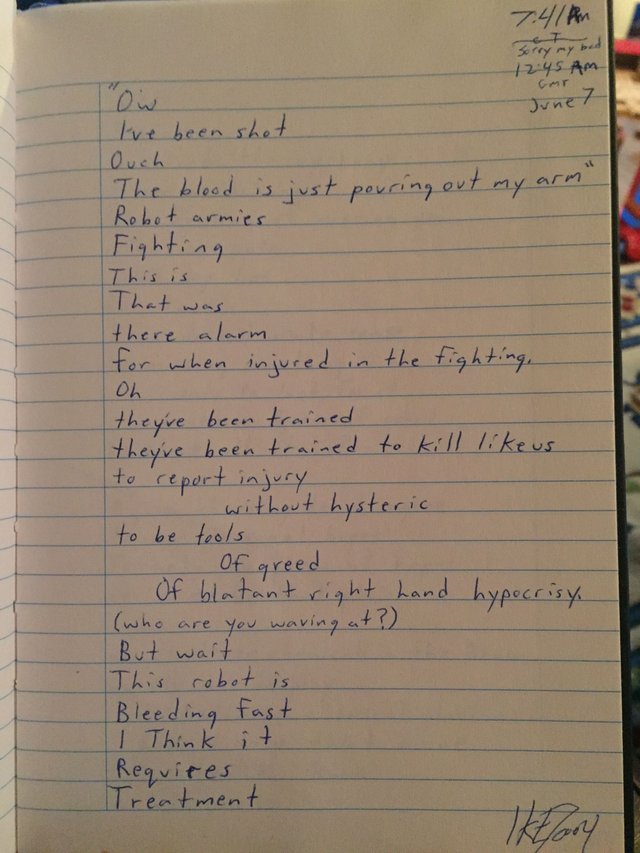 7:41 Am
ET
Sorry my bad
12:45 Am
GMT
June 7
"Ow
I've been shot
Ouch
The blood is just pouring out my arm"
Robot armies
Fighting
This is
That was
there alarm
for when injured in the fighting.
Oh
they've been trained
they've been trained to kill like us
to report injury
without hysteric
to be tools
Of greed
Of blatant right hand hypocrisy.
(who are you waving at?)
But wait
This robot is
Bleeding fast
I Think it
Requires
Treatment